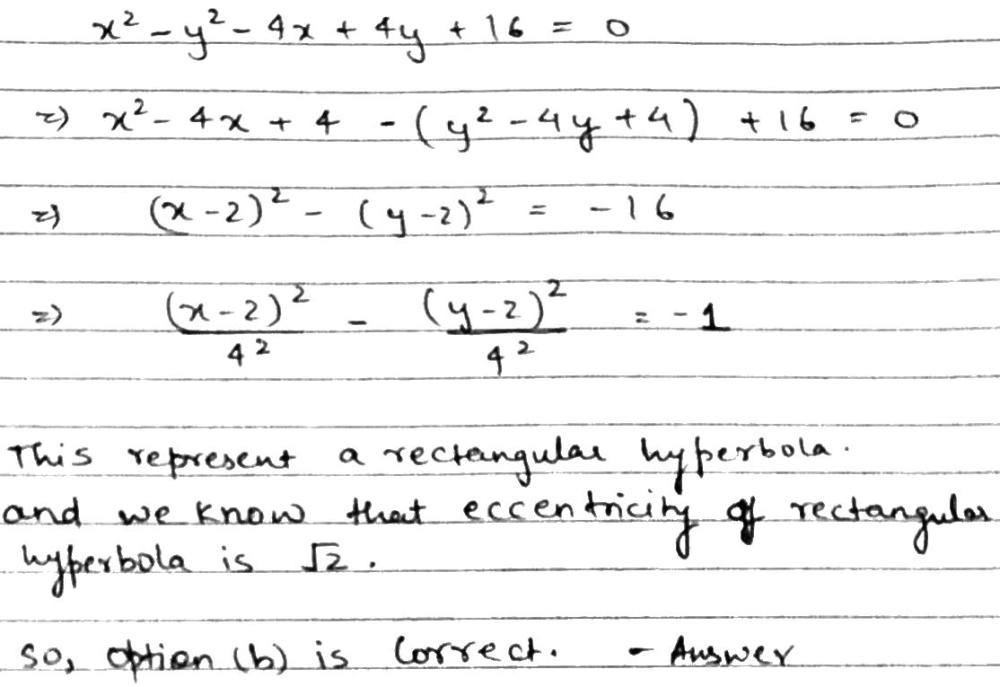 x² - y² - 4x + 4y + 16 = 0
=) x² - 4x + 4 - (y² - 4y + 4) + 16 = 0
=) (x - 2)² - (y - 2)² = - 16
=) (x - 2)²/4² - (y - 2)²/4² = - 1
This represent a rectangular hyperbola.
and we know that eccentricity of rectangular
hyperbola is √2.
so, option (b) is correct. - Answer